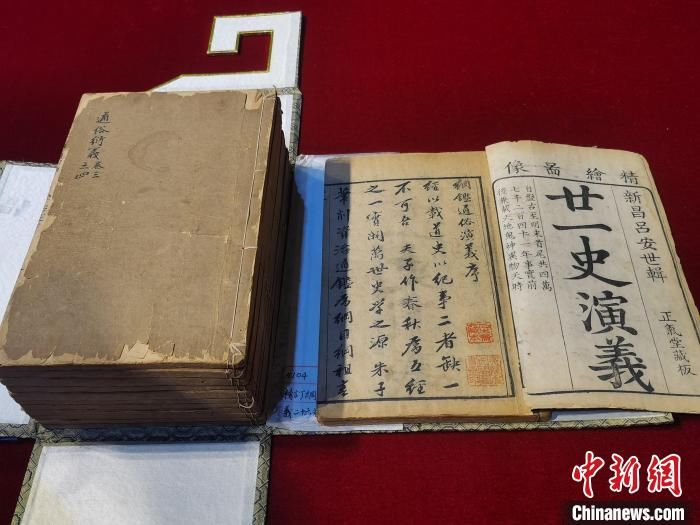 通俗衍義卷三
三四
綱鑑通俗演義序
經以載道史以紀事二者缺一
不可台 夫子作春秋為五經
之一實開萬世史學之源朱子
筆削資治通鑑為綱目綱祖
精繪圖像
新昌呂安世輯
廿一史演義
自盤古至明末首尾共四萬
七千二百四十一年事實前
後兼載天地鬼神異物天時
正氣堂藏板
中新网
Chinanews.com